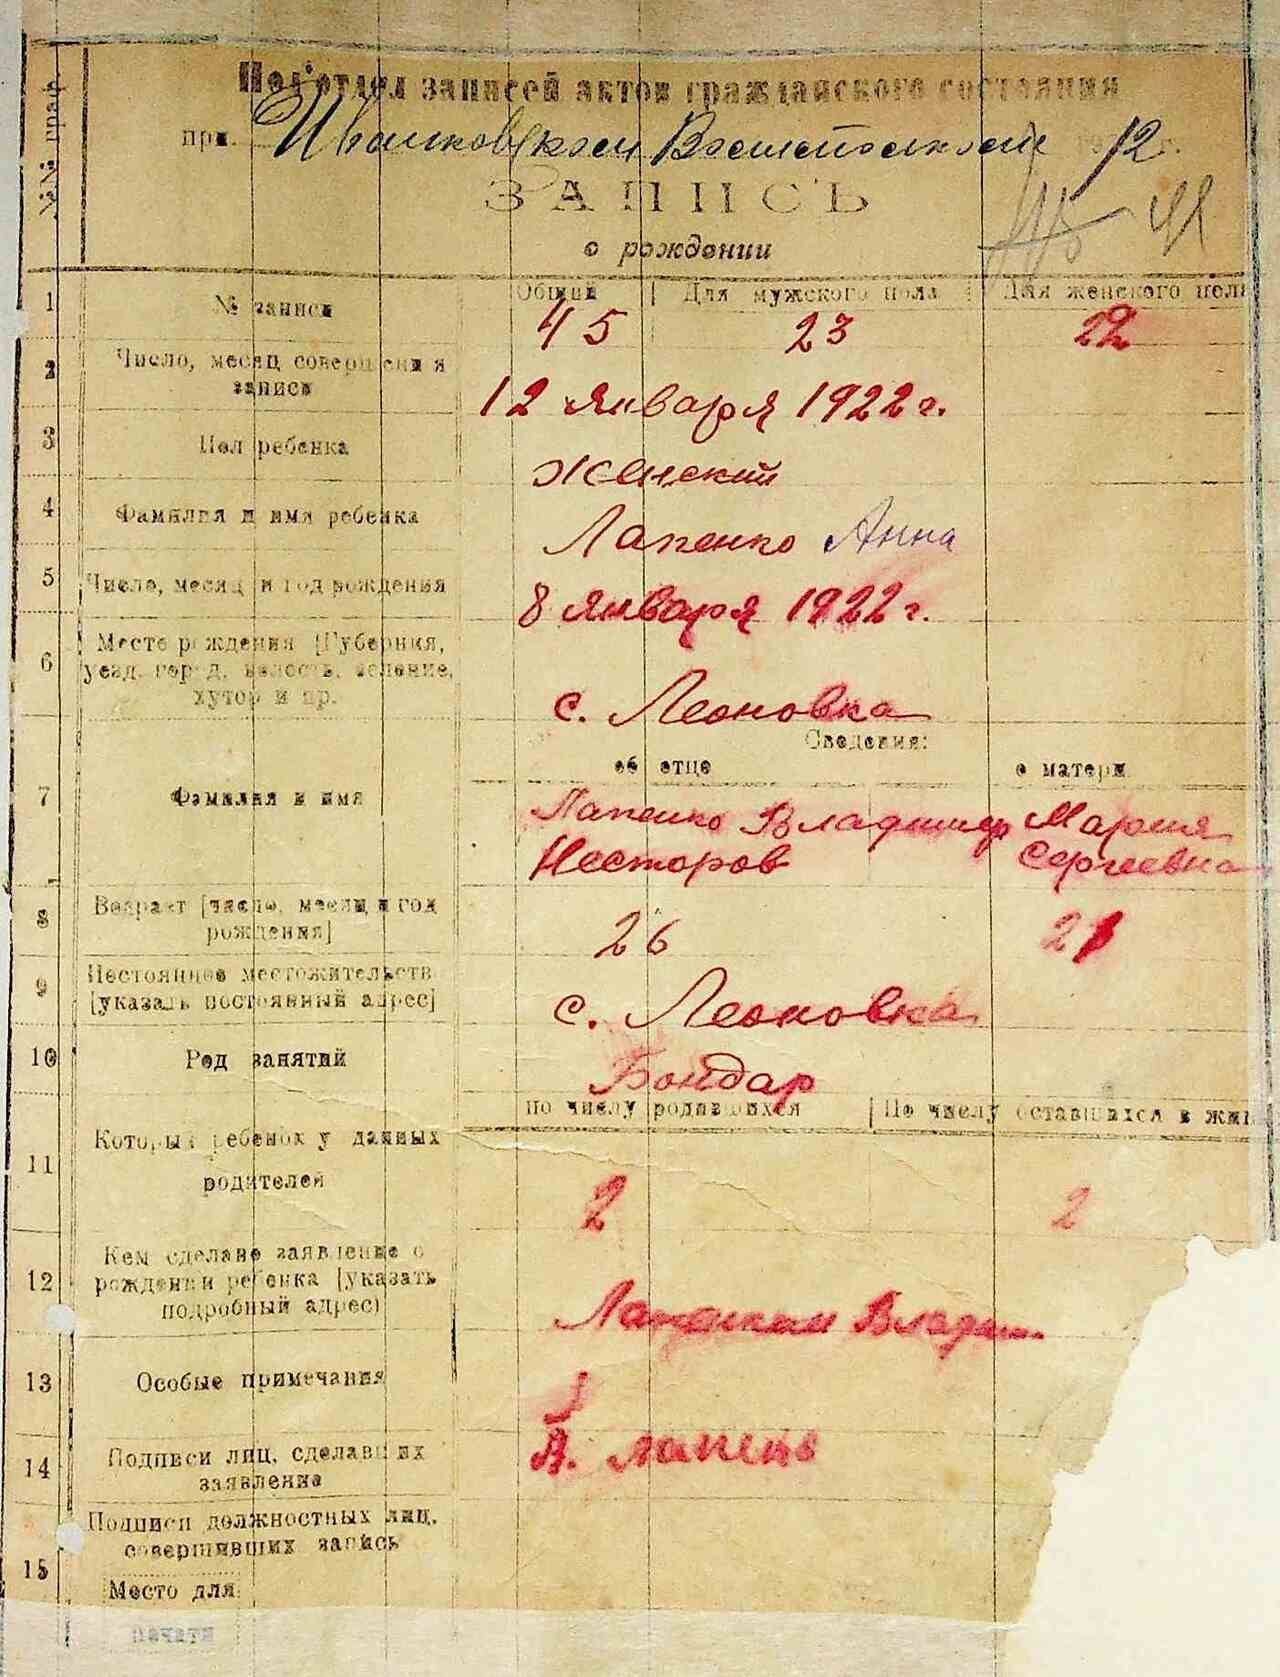 №№ граф
Подотдел записей актов гражданского состояния
при 12 г.
ЗАПИСЬ
о рождении
1 № записи Общий Для мужского пола Для женского пола
45 23 22
2 Число, месяц совершения записи
12 января 1922 г.
3 Пол ребенка Женский
4 Фамилия и имя ребенка Лапенко Анна
5 Число, месяц и год рождения 8 января 1922 г.
6 Место рождения [Губерния,
уезд, город, волость, селение,
хутор и пр. с. Леоновка
Сведения:
об отце о матери
7 Фамилия и имя Лапенко Владимир Мария
Несторов Сергеевна
8 Возраст [число, месяц и год
рождения] 26 21
9 Постоянное местожительств
[указать постоянный адрес] с. Леоновка
10 Род занятий Бондар
По числу родившихся По числу оставшихся в жив
11 Который ребенок у данных
родителей 2 2
12 Кем сделано заявление о
рождении ребенка [указать
подробный адрес) Владим
13 Особые примечания
14 Подписи лиц, сделавших
заявление
15 Подписи должностных лиц,
совершивших запись
Место для
печати